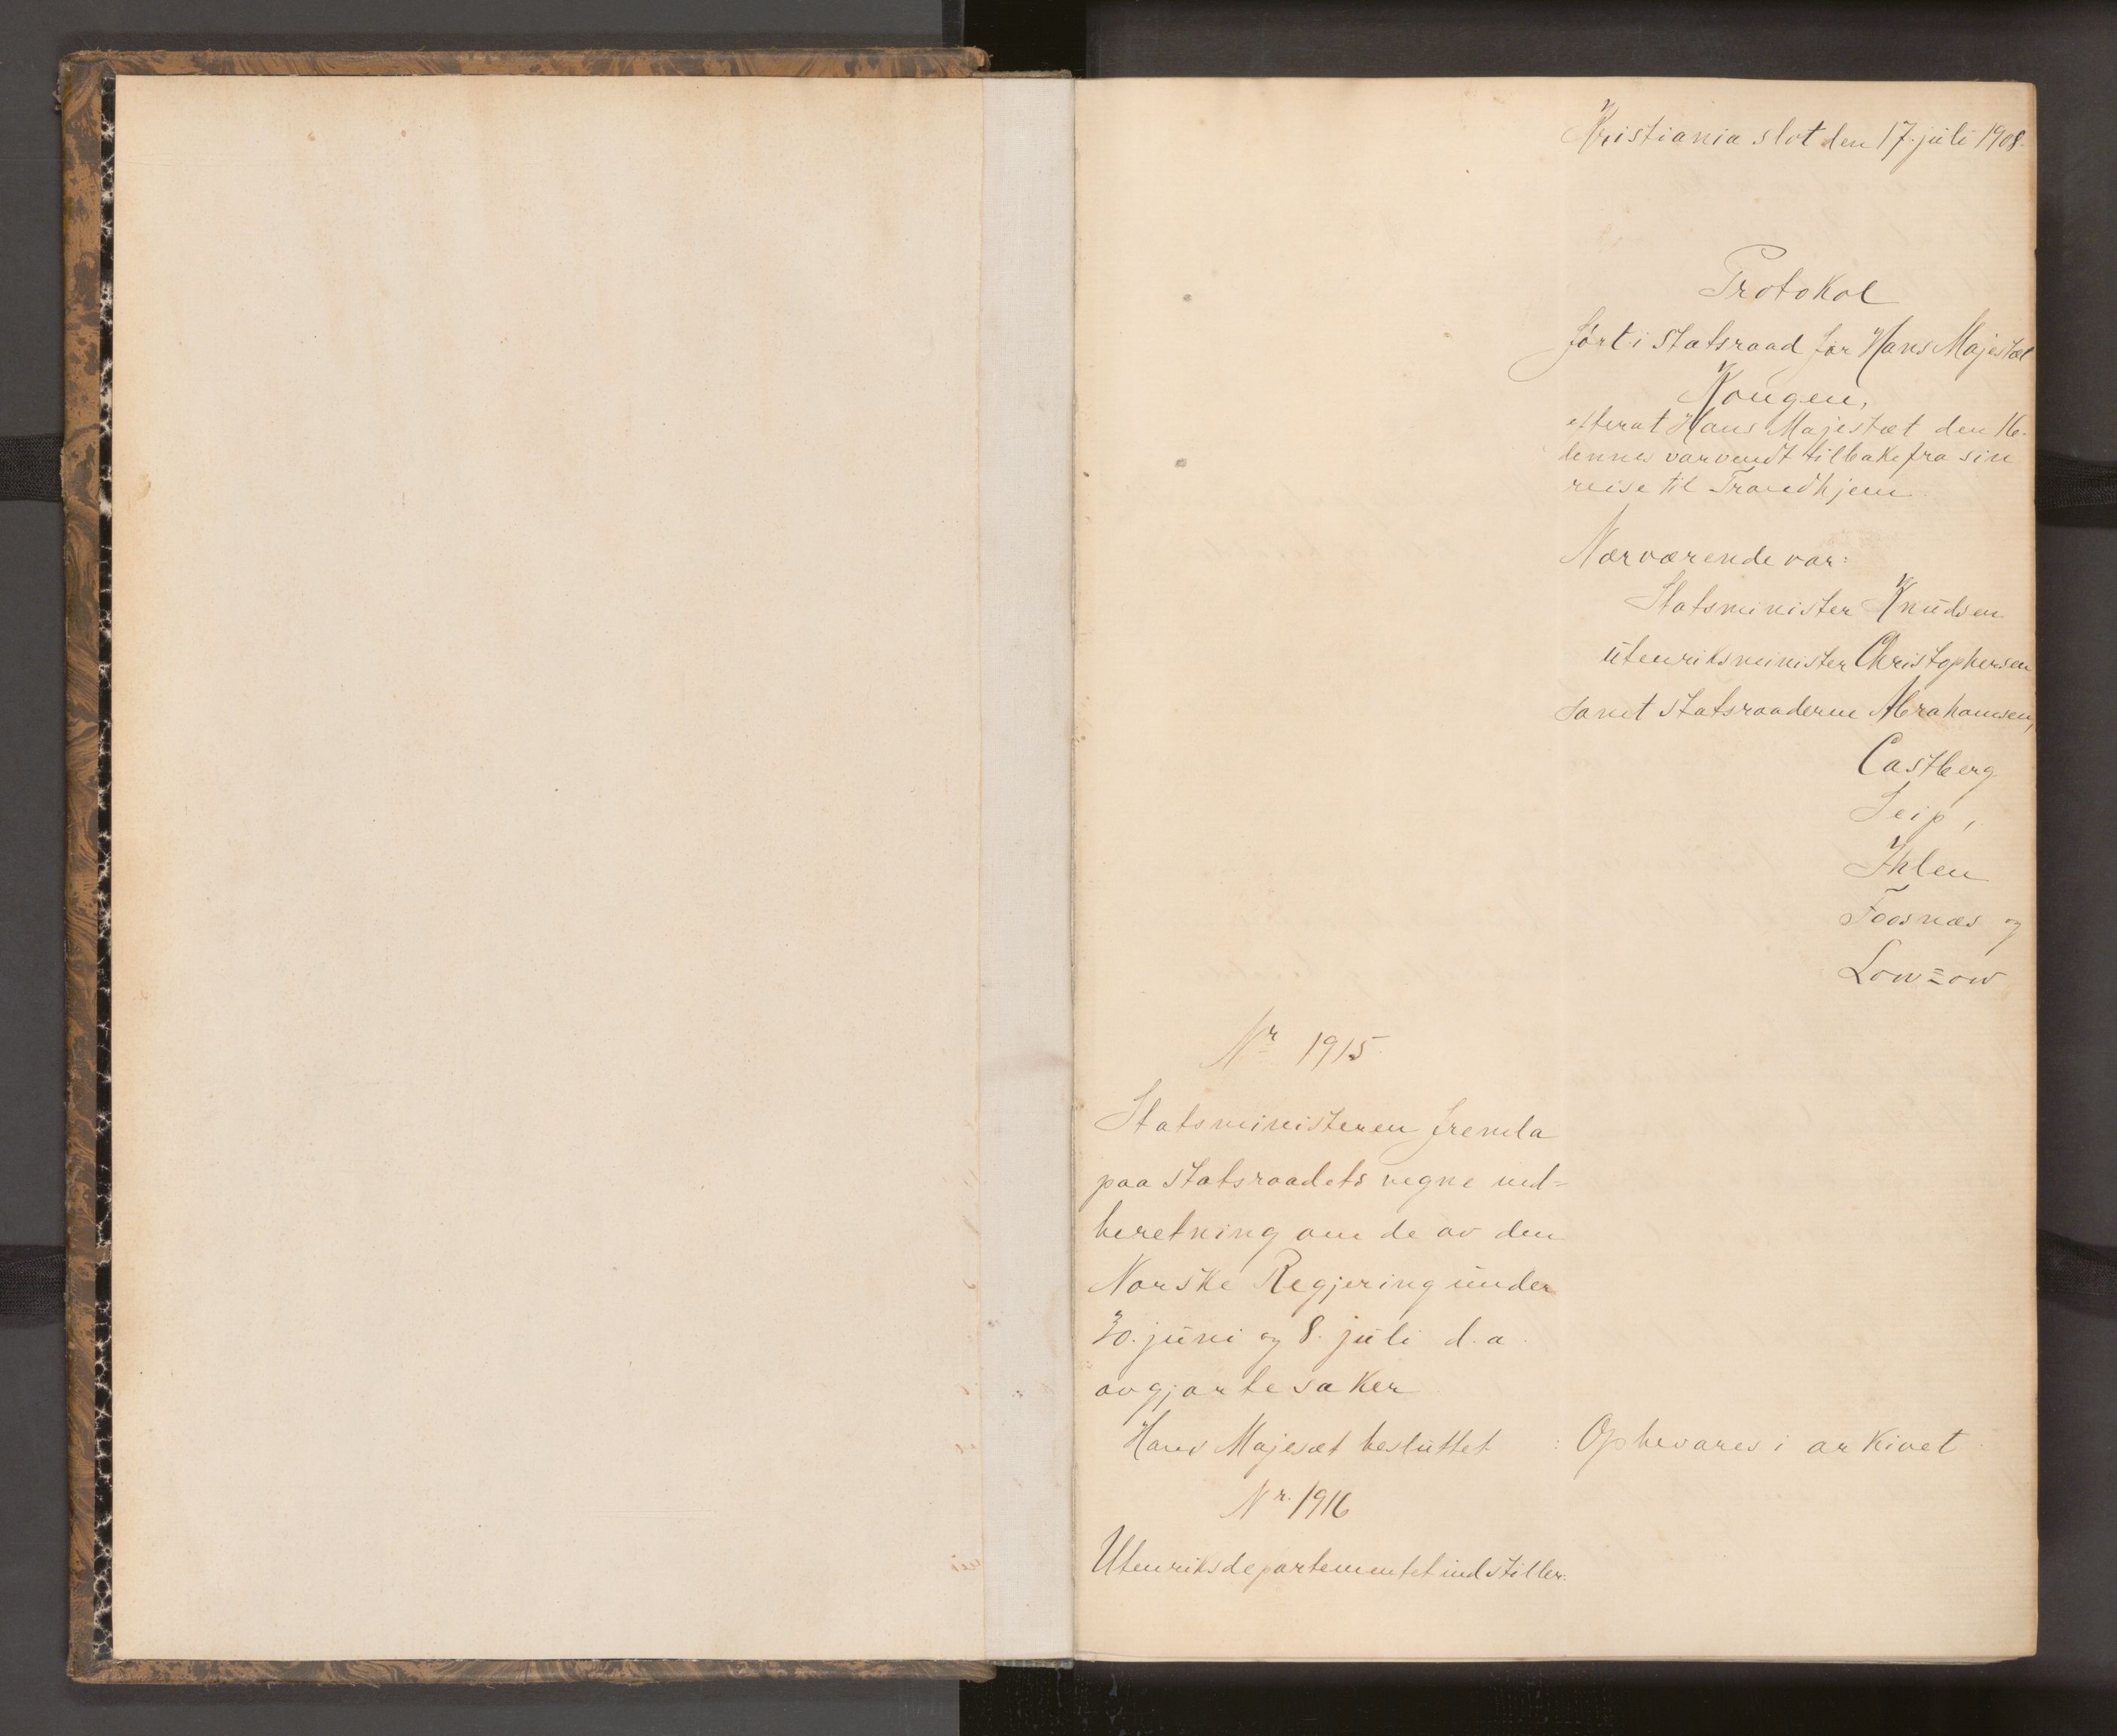 Kristiania slot den 17. juli 1908.
Protokol
ført i statsraad for Hans Majestæt
Kongen,
efterat Hans Majestæt den 16.
dennes var vendt tilbake fra sin
reise til Trondhjem.
Nærværende var:
Statsminister Knudsen
utenriksminister Christophersen
samt statsraaderne Abrahamsen,
Castberg
Seip,
Ihlen
Foosnæs og
Lowzow
Nr 1915
Statsministeren fremla
paa statsraadets vegne ind-
beretning om de av den
Norske Regjering under
30. juni og 8. juli d.a.
avgjorte saker
Hans Majesæt besluttet : Opbevares i arkivet
Nr. 1916
Utenriksdepartementet indstiller: